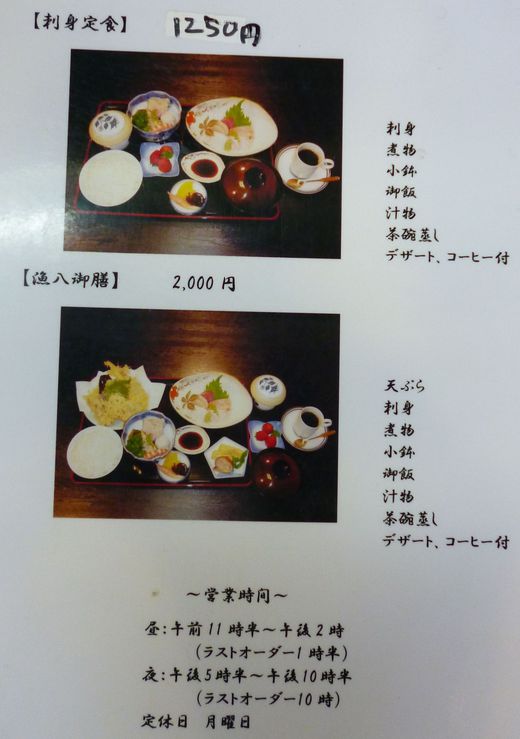 【刺身定食】 1250円
刺身
煮物
小鉢
御飯
汁物
茶碗蒸し
デザート、コーヒー付
【漁八御膳】 2,000円
天ぷら
刺身
煮物
小鉢
御飯
汁物
茶碗蒸し
デザート、コーヒー付
～営業時間～
昼：午前11時半～午後2時
（ラストオーダー1時半）
夜：午後5時半～午後10時半
（ラストオーダー10時）
定休日 月曜日